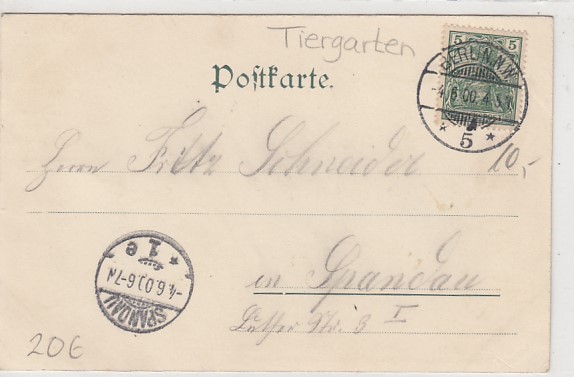 Tiergarten
5 5
BERLIN N.W.
-4.6.00.4-5N.
* 5 *
Postkarte.
10,-
Herrn Fritz Schneider
in Spandau
Luther Str. 3 I
SPANDAU
-4.6.00.6-7N
* 1e
20€